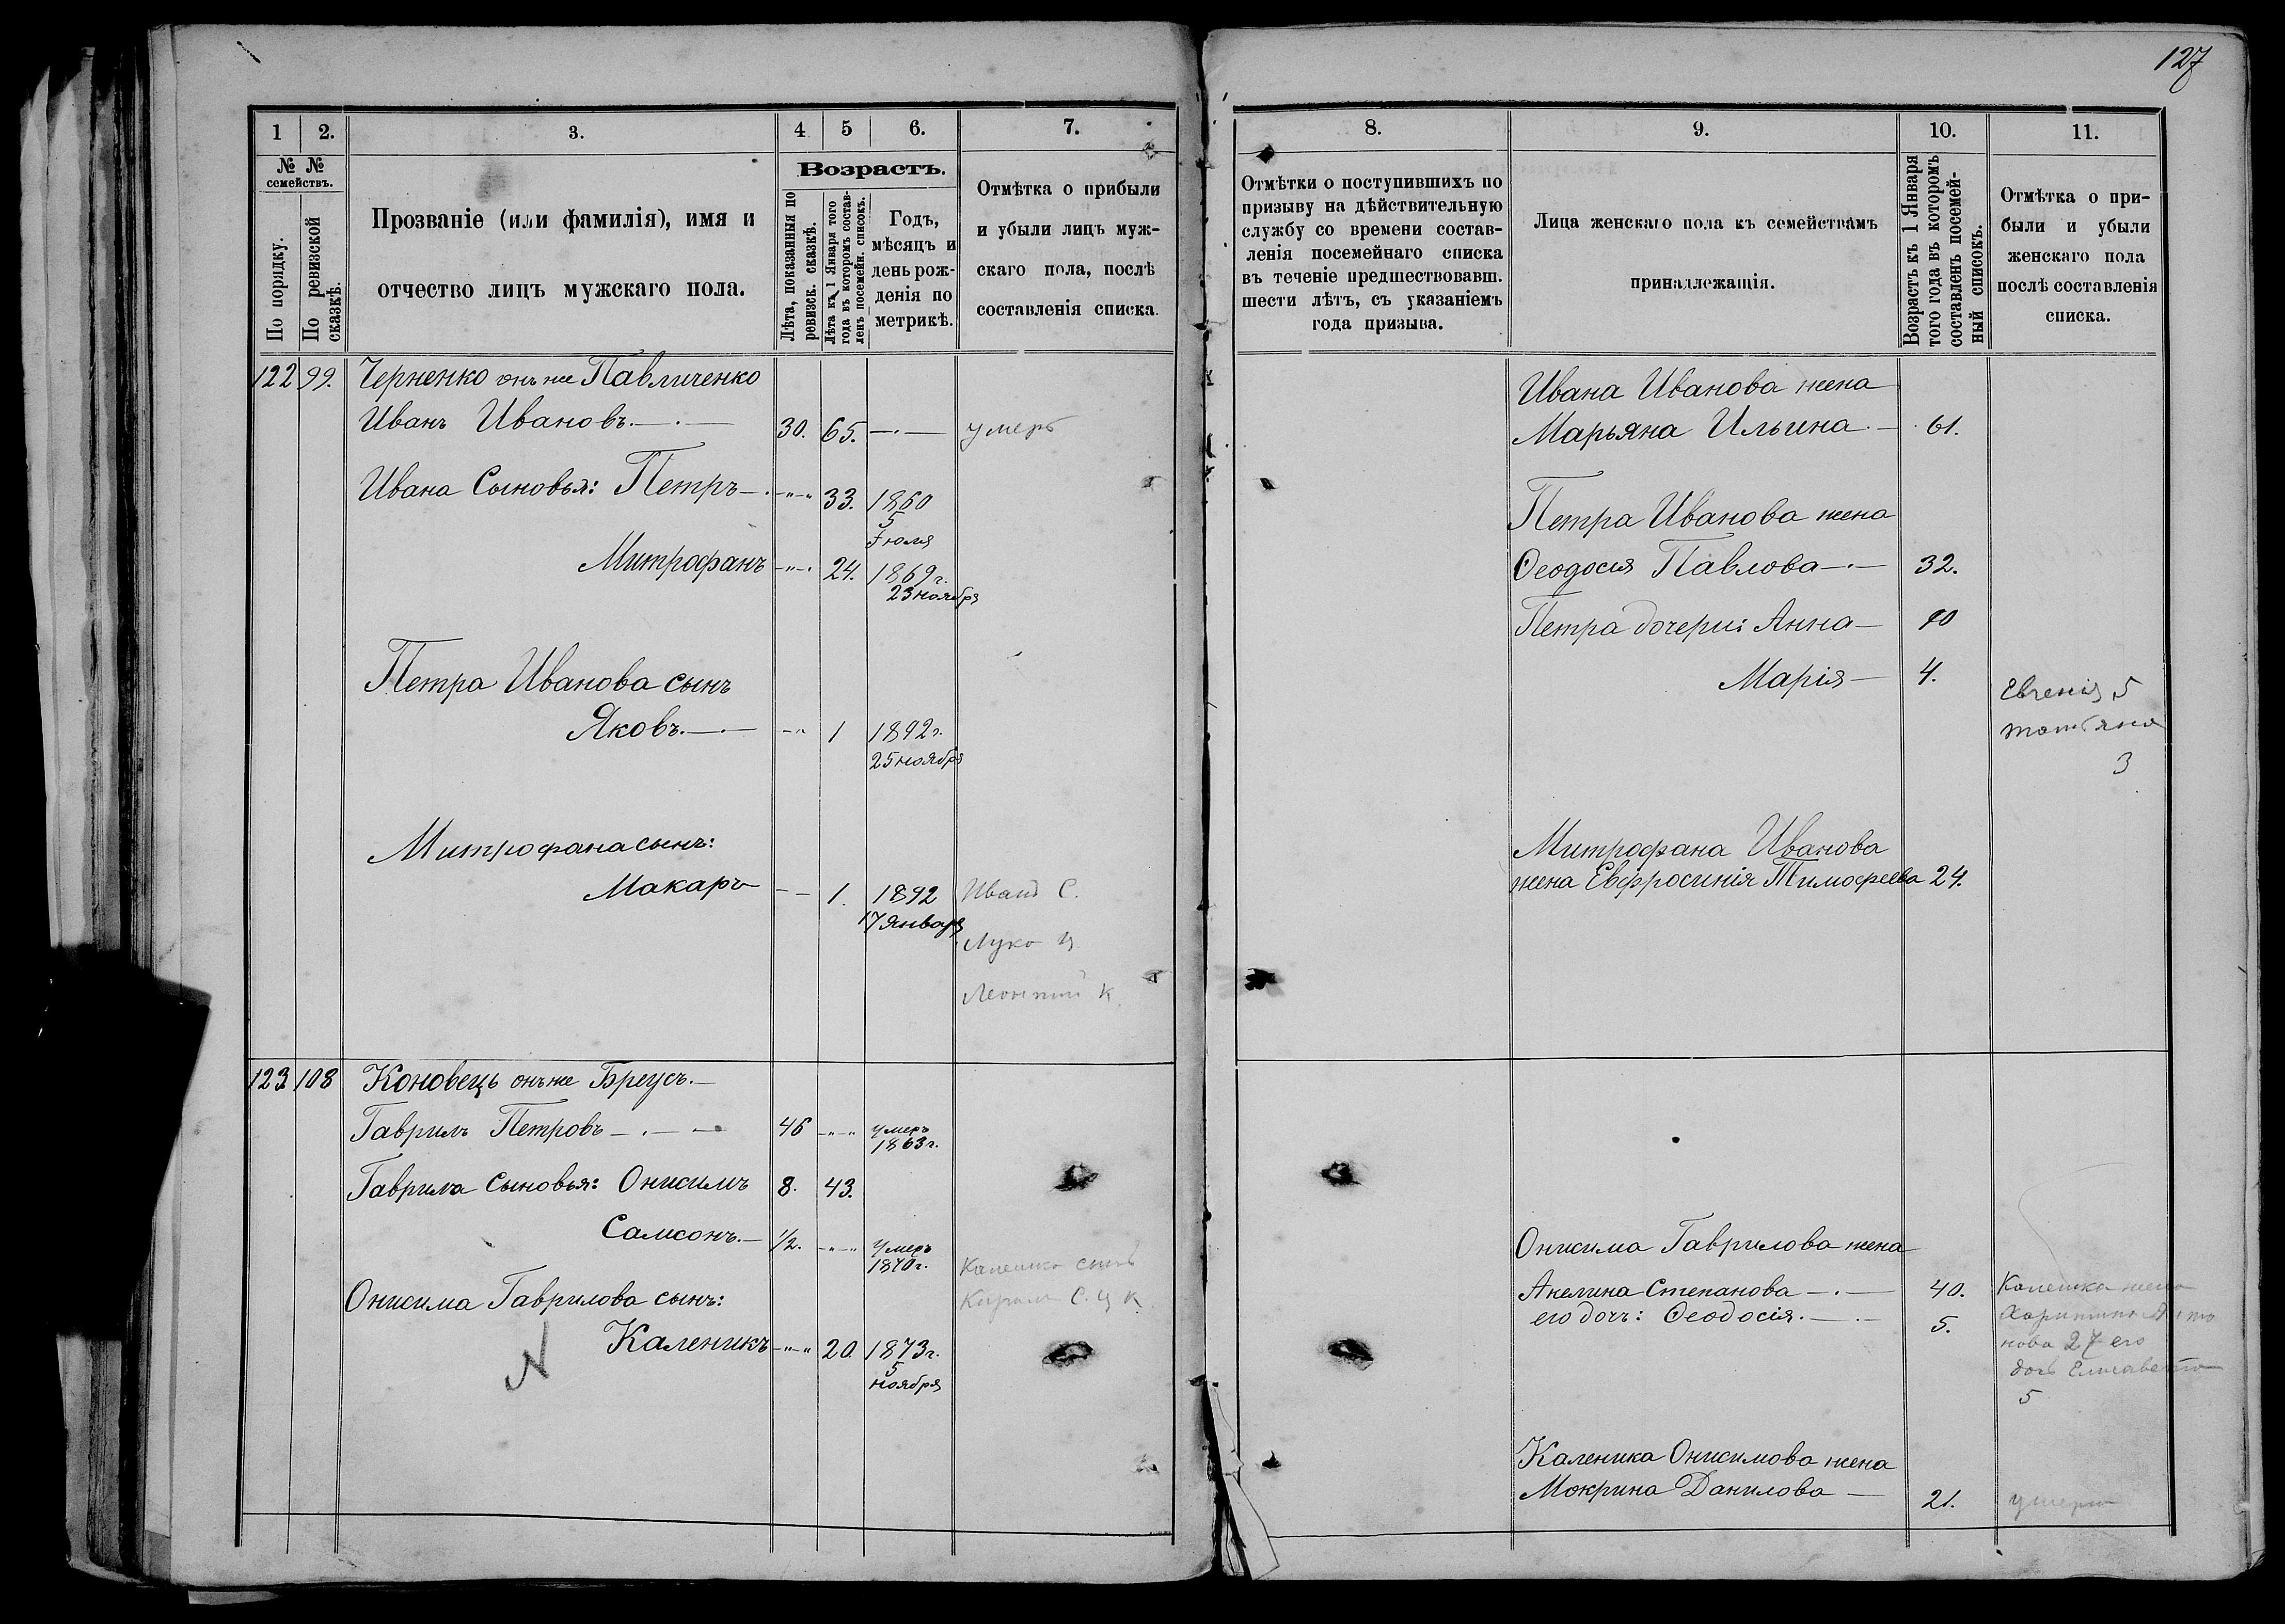 127
1
2.
3.
4
5
6.
7.
№ №
семействъ.
По порядку.
По ревизской
сказкѣ.
Прозваніе (или фамилія), имя и
отчество лицъ мужскаго пола.
Возрастъ.
Лѣта, показанныя по
ревизск. сказкѣ.
Лѣта къ 1 Января того
года въ которомъ состав-
ленъ посемейн. списокъ.
Годъ,
мѣсяцъ и
день рож-
денія по
метрикѣ.
Отмѣтка о прибыли
и убыли лицъ муж-
скаго пола, послѣ
составленія списка.
122 99. Черненко онъ же Павличенко
Иванъ Ивановъ.—.— 30. 65. —.— умеръ
Ивана Сыновья: Петръ—. -"-" 33. 1860
5
Іюля
Митрофанъ -"-. 24. 1869 г.
23 ноября
Петра Иванова сынъ
Яковъ.—.— -" 1 1892 г.
25 ноября
Митрофана сынъ:
Макаръ — — 1. 1892 Иванъ С.
17 Января
Луко Ц
Леонтій К.
123 108 Коновецъ онъ же Бреусъ.—
Гаврилъ Петровъ —.— — 46 -"-" умеръ
1863 г.
Гаврила Сыновья: Онисимъ 8. 43.
Самсонъ.— 1/2. -"-" Умеръ
1870 г.
Каленика сынъ
Онисима Гаврилова сынъ: С. Ц К
Каленикъ -"-" 20. 1873 г.
N
5
ноября
8.
9.
10.
11.
Отмѣтки о поступившихъ по
призыву на дѣйствительную
службу со времени состав-
ленія посемейнаго списка
въ теченіе предшествовавш.
шести лѣтъ, съ указаніемъ
года призыва.
Лица женскаго пола къ семействамъ
принадлежащія.
Возрастъ къ 1 Января
того года въ которомъ
составленъ посемей-
ный списокъ.
Отмѣтка о при-
были и убыли
женскаго пола
послѣ составленія
списка.
Ивана Иванова жена
Марьяна Ильина.— 61.
Петра Иванова жена
Ѳеодосія Павлова—.— 32.
Петра дочери: Анна— 10
Марія— 4.
Евгенія 5
Татьяна
3
Митрофана Иванова
жена Евфросинія Тимофеева 24.
Онисима Гаврилова жена
Акелина Степанова —.— 40. Каленика жена
его дочь: Ѳеодосія.—.— 5.
нова 27 его
дочь Елисавета
5
Каленика Онисимова жена
Мокрина Данилова — 21. умерла